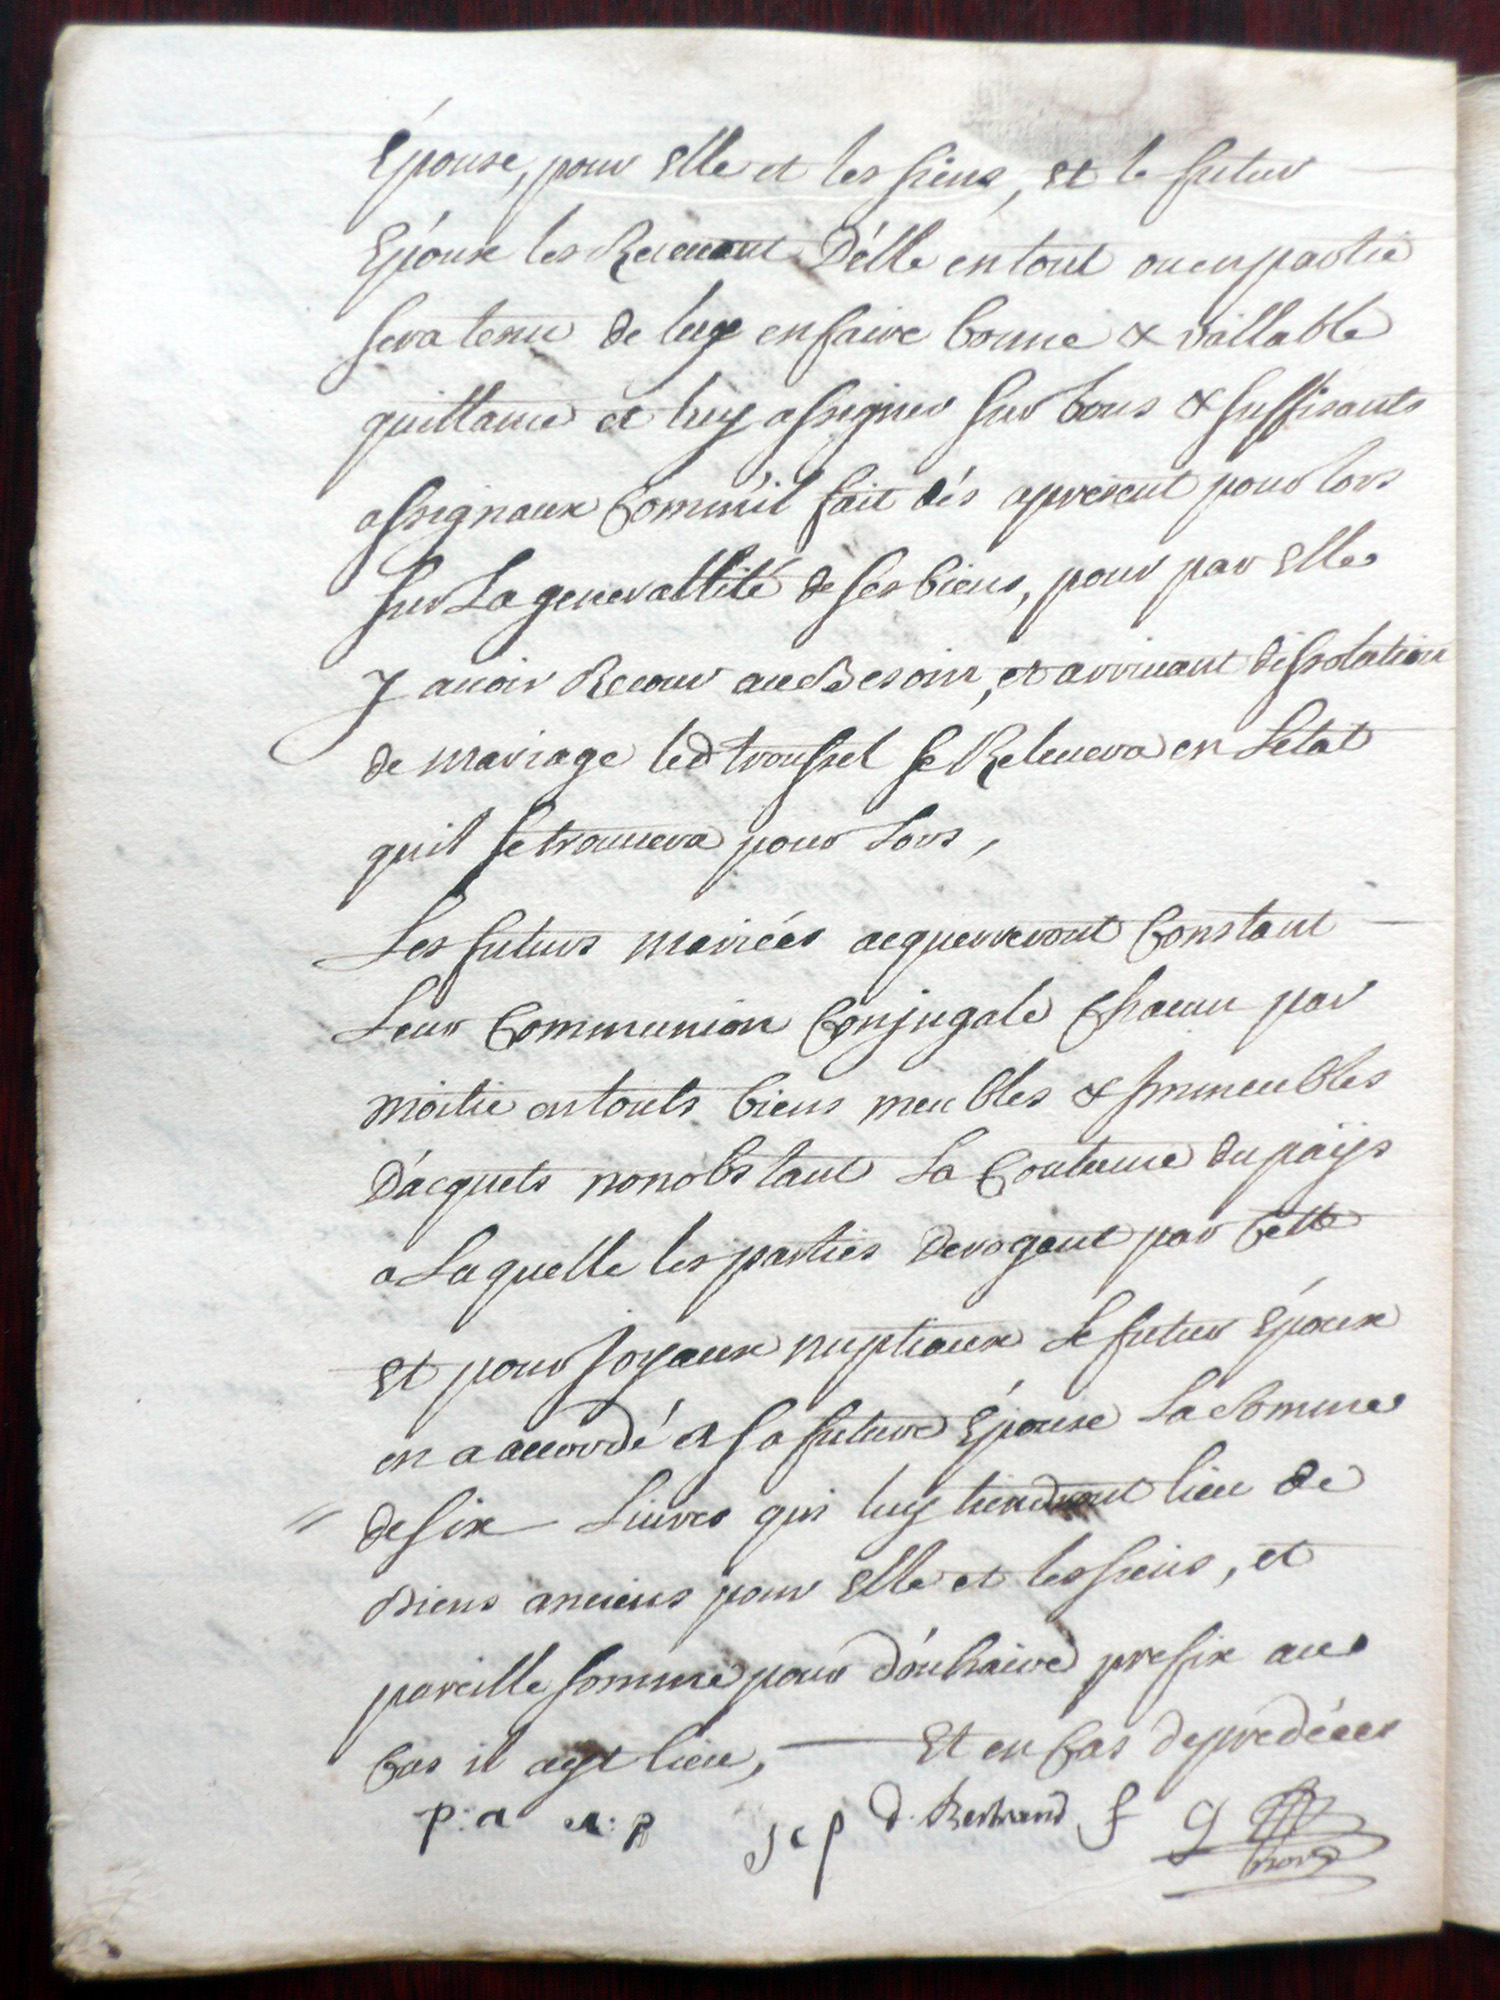 Épouse, pour Elle et les siens, Et le futur
Epoux les Recevant D'élle en tout ou en partie
sera tenu de luy en faire bonne & vallable
quittance et luy assigner sur bons & suffisants
assignaux Comm'il fait dés apresent pour lors
sur La generallité de ses biens, pour par Elle
y avoir Recour au Besoin, et arrivant dissolution
de mariage led troussel se Relevera en Letat
quil se trouvera pour Lors,
Les futurs mariées acquerreront Constant
Leur Communion Conjugale Chacun par
moitie en touts biens meubles & Immeubles
D'acquets nonobstant La Coutume du païs
a Laquelle les parties derogent par Cette
Et pour Joyaux nuptiaux Le futur Epoux
en a accordé a sa future Épouse La Somme
de six Livres qui luy tiendront lieu de
Biens anciens pour Elle et les siens, et
pareille somme pour doühaire prefix au
Cas il ayt lieu, Et en Cas de predécés
p: a a: p J c p d. Bertrand f g